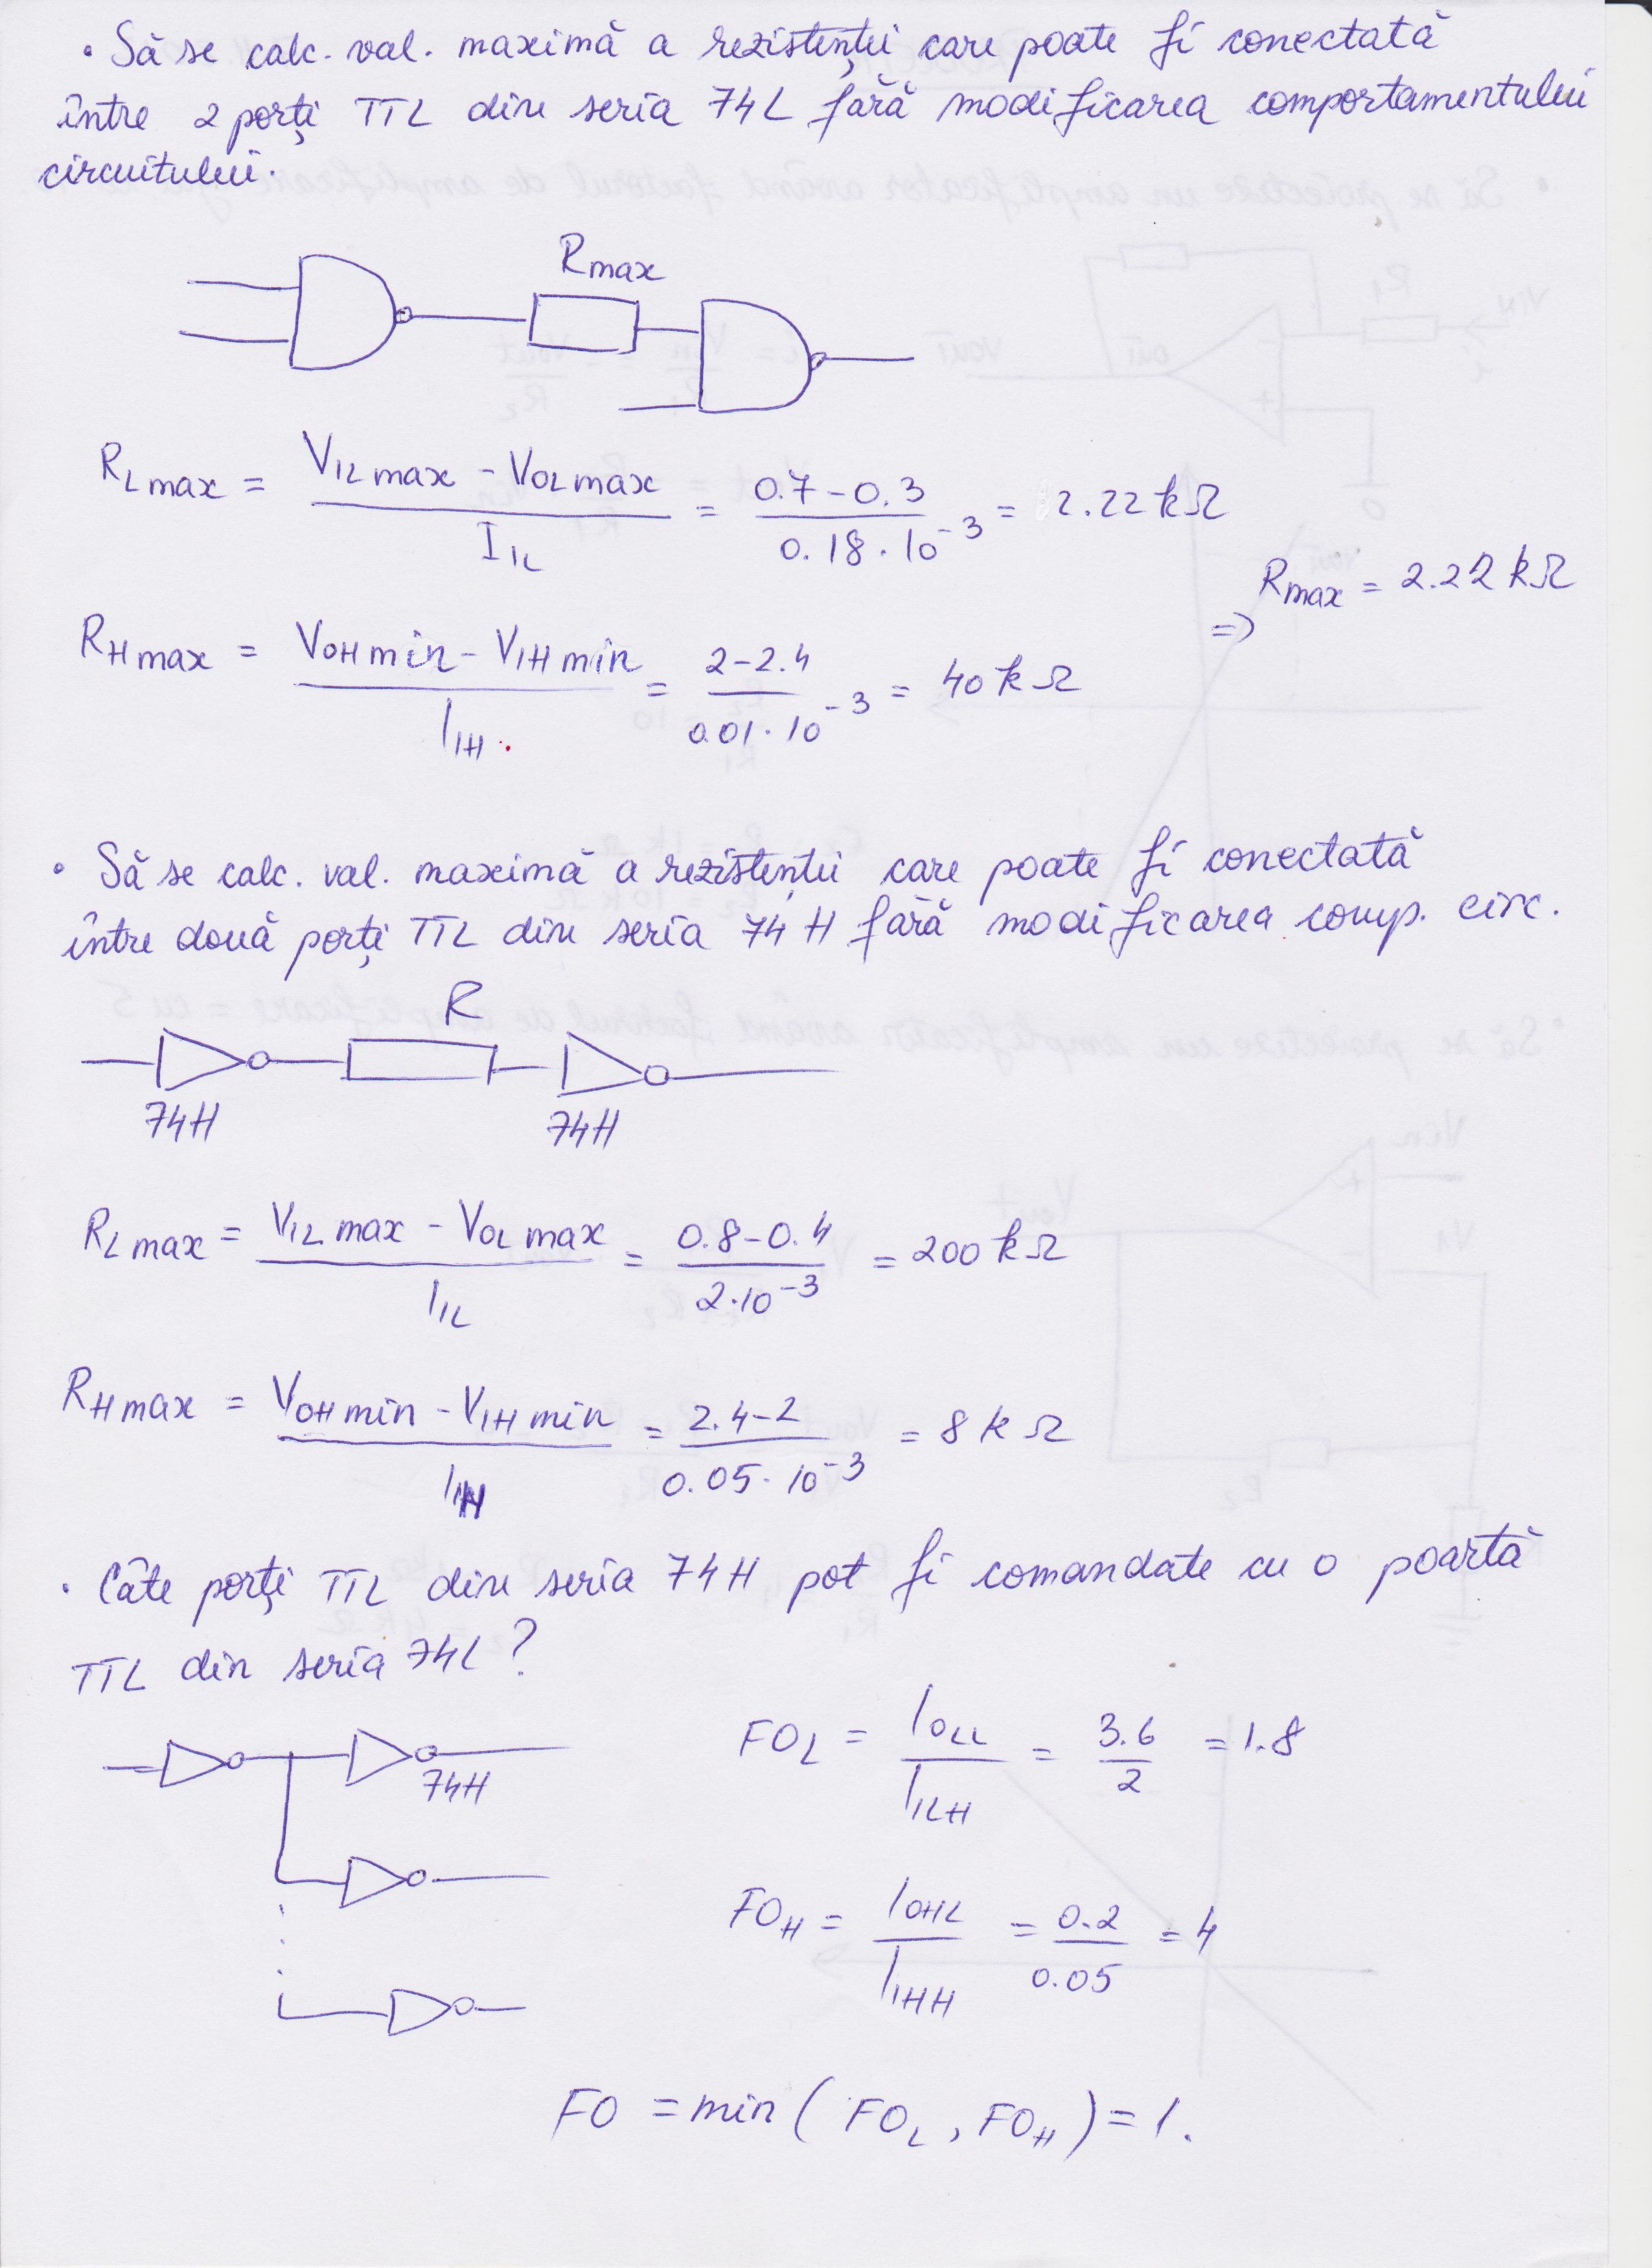 • Să se calc. val. maximă a rezistenței care poate fi conectată
între 2 porți TTL din seria 74L fără modificarea comportamentului
circuitului.
Rmax
RLmax = (VILmax - VOLmax) / IIL = (0.7 - 0.3) / (0.18 · 10^-3) = 2.22 kΩ
=> Rmax = 2.22 kΩ
RHmax = (VOHmin - VIHmin) / IIH = (2 - 2.4) / (0.01 · 10^-3) = 40 kΩ
• Să se calc. val. maximă a rezistenței care poate fi conectată
între două porți TTL din seria 74H fără modificarea comp. circ.
R
74H 74H
RLmax = (VILmax - VOLmax) / IIL = (0.8 - 0.4) / (2 · 10^-3) = 200 kΩ
RHmax = (VOHmin - VIHmin) / IIH = (2.4 - 2) / (0.05 · 10^-3) = 8 kΩ
• Câte porți TTL din seria 74H pot fi comandate cu o poartă
TTL din seria 74L?
74H
FOL = IOLL / IILH = 3.6 / 2 = 1.8
FOH = IOHL / IIHH = 0.2 / 0.05 = 4
FO = min (FOL, FOH) = 1.